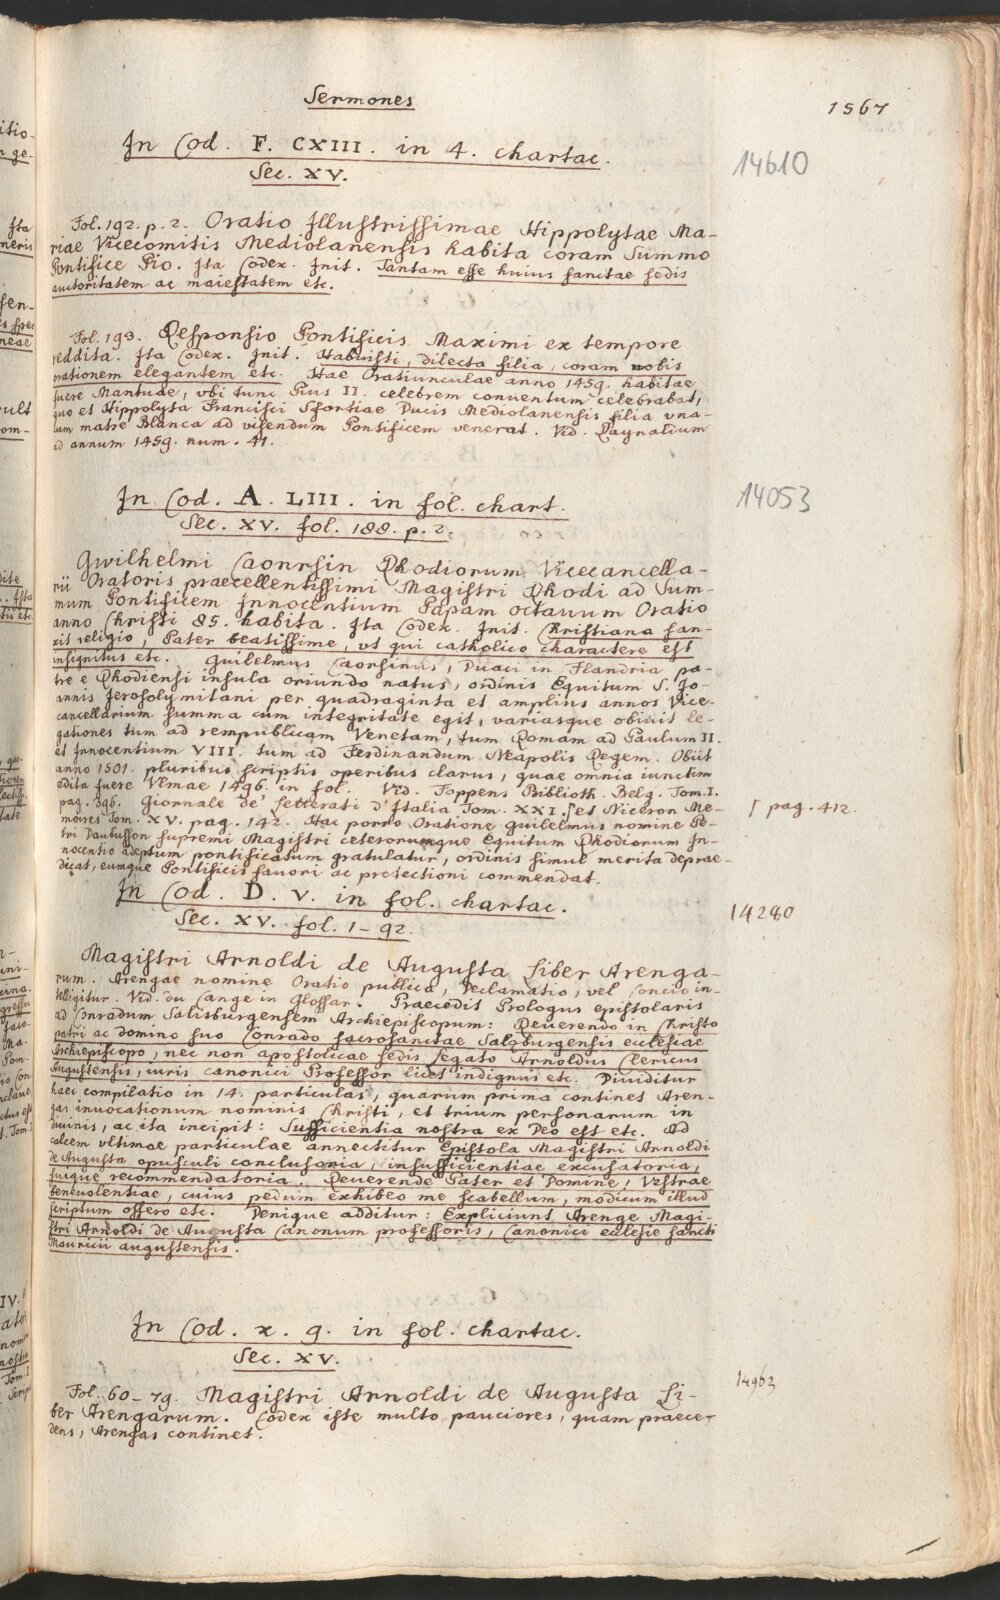 Sermones
1567
In Cod. F. CXIII. in 4. chartac.
14610
Sec. XV.
Fol. 192. p. 2. Oratio Illustrissimae Hippolytae Ma-
riae Vicecomitis Mediolanensis habita coram Summo
Pontifice Pio. Ita Codex. Init. Tantam esse huius sanctae sedis
auctoritatem ac maiestatem etc.
Fol. 193. Responsio Pontificis Maximi ex tempore
reddita. Ita Codex. Init. Habuisti, dilecta filia, coram nobis
orationem elegantem etc. Hae Oratiunculae anno 1459. habitae
fuere Mantuae, vbi tunc Pius II. celebrem conuentum celebrabat,
quo et Hippolyta Francisci Sfortiae Ducis Mediolanensis filia vna-
cum matre Blanca ad visendum Pontificem venerat. Vid. Raynaldum
ad annum 1459. num. 41.
In Cod. A. LIII. in fol. chart.
14053
Sec. XV. fol. 188. p. 2.
Gwilhelmi Caonrsin Rhodiorum Vicecancella-
rii Oratoris praecellentissimi Magistri Rhodi ad Sum-
mum Pontificem Innocentium Papam octauum Oratio
anno Christi 85. habita. Ita Codex. Init. Christiana san-
xit religio, Pater beatissime, vt qui catholico charactere est
insignitus etc. Guilelmus Caorsinus, Duaci in Flandria pa-
tre e Rhodiensi insula oriundo natus, ordinis Equitum S. Jo-
annis Jerosolymitani per quadraginta et amplius annos Vice-
cancellarium summa cum integritate egit, variasque obiuit le-
gationes tum ad rempublicam Venetam, tum Romam ad Paulum II.
et Innocentium VIII. tum ad Ferdinandum Neapolis Regem. Obiit
anno 1501. pluribus scriptis operibus clarus, quae omnia iunctim
edita fuere Vlmae 1496. in fol. Vid. Foppens Biblioth. Belg. Tom. I.
pag. 396. Giornale de' Letterati d'Italia Tom. XXI. ⌈ et Niceron Me-
⌈ pag. 412.
moires Tom. XV. pag. 142. Hac porro Oratione Guilelmus nomine Pe-
tri Daubusson supremi Magistri ceterorumque Equitum Rhodiorum In-
nocentio adeptum pontificatum gratulatur, ordinis simul merita deprae-
dicat, eumque Pontificis fauori ac protectioni commendat.
In Cod. D. V. in fol. chartac.
14280
Sec. XV. fol. 1-92.
Magistri Arnoldi de Augusta Liber Arenga-
rum. Arengae nomine Oratio publica, Declamatio, vel Concio in-
telligitur. Vid. du Cange in Glossar. Praecedit Prologus epistolaris
ad Conradum Salisburgensem Archiepiscopum: Reuerendo in Christo
patri ac domino suo Conrado sacrosanctae Salzburgensis ecclesiae
Archiepiscopo, nec non apostolicae sedis Legato Arnoldus Clericus
Augustensis, iuris canonici Professor licet indignus etc. Diuiditur
haec compilatio in 14. particulas, quarum prima continet Aren-
gas inuocationum nominis Christi, et trium personarum in
diuinis, ac ita incipit: Sufficientia nostra ex Deo est etc. Ad
calcem vltimae particulae annectitur Epistola Magistri Arnoldi
de Augusta opusculi conclusoria, insufficientiae excusatoria,
suique recommendatoria. Reuerende Pater et Domine, Vestrae
beneuolentiae, cuius pedum exhibeo me scabellum, modicum illud
scriptum offero etc. Denique additur: Expliciunt Arenge Magi-
stri Arnoldi de Augusta Canonum professoris, Canonici ecclesie sancti
Mauricii augustensis.
In Cod. x. 9. in fol. chartac.
Sec. XV.
14963
Fol. 60-79. Magistri Arnoldi de Augusta Li-
ber Arengarum. Codex iste multo pauciores, quam praece-
dens, Arengas continet.